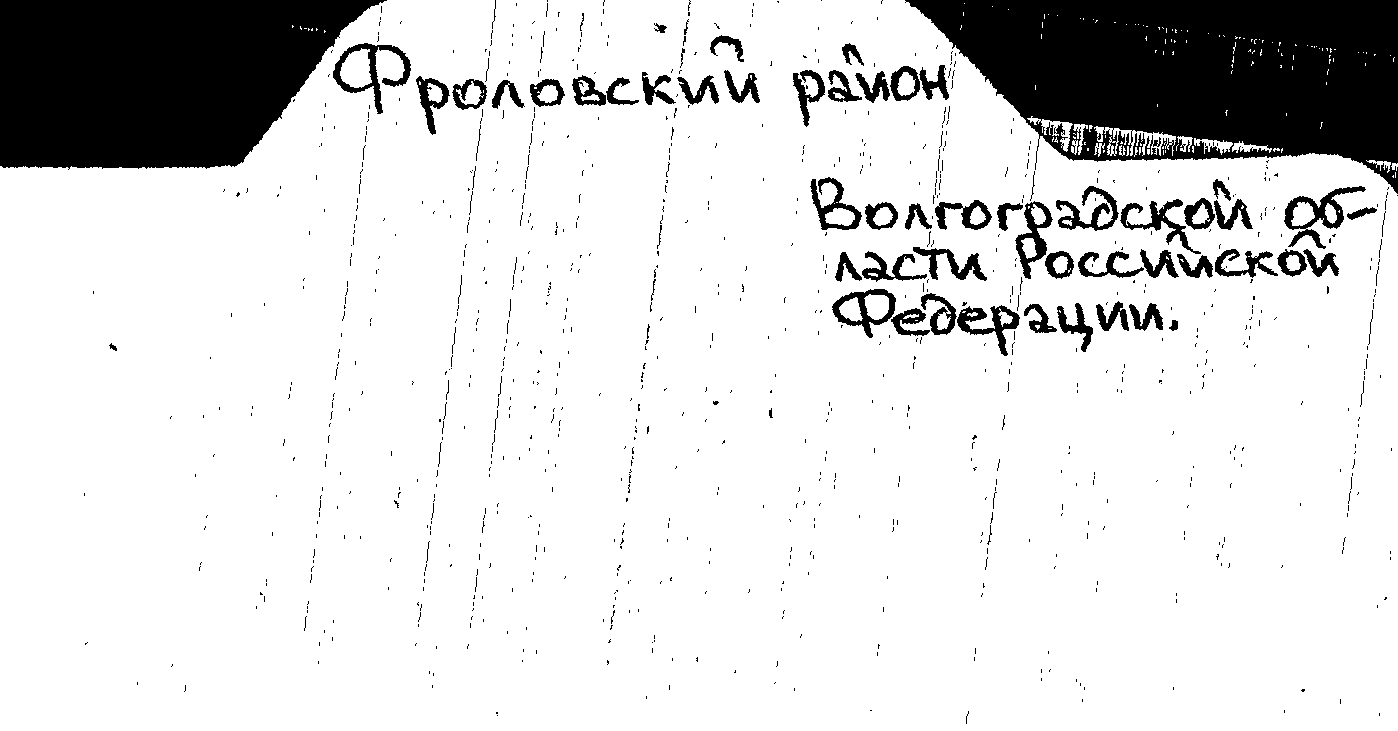 Фроловский район
Волгоградской об-
ласти Российской
Федерации.